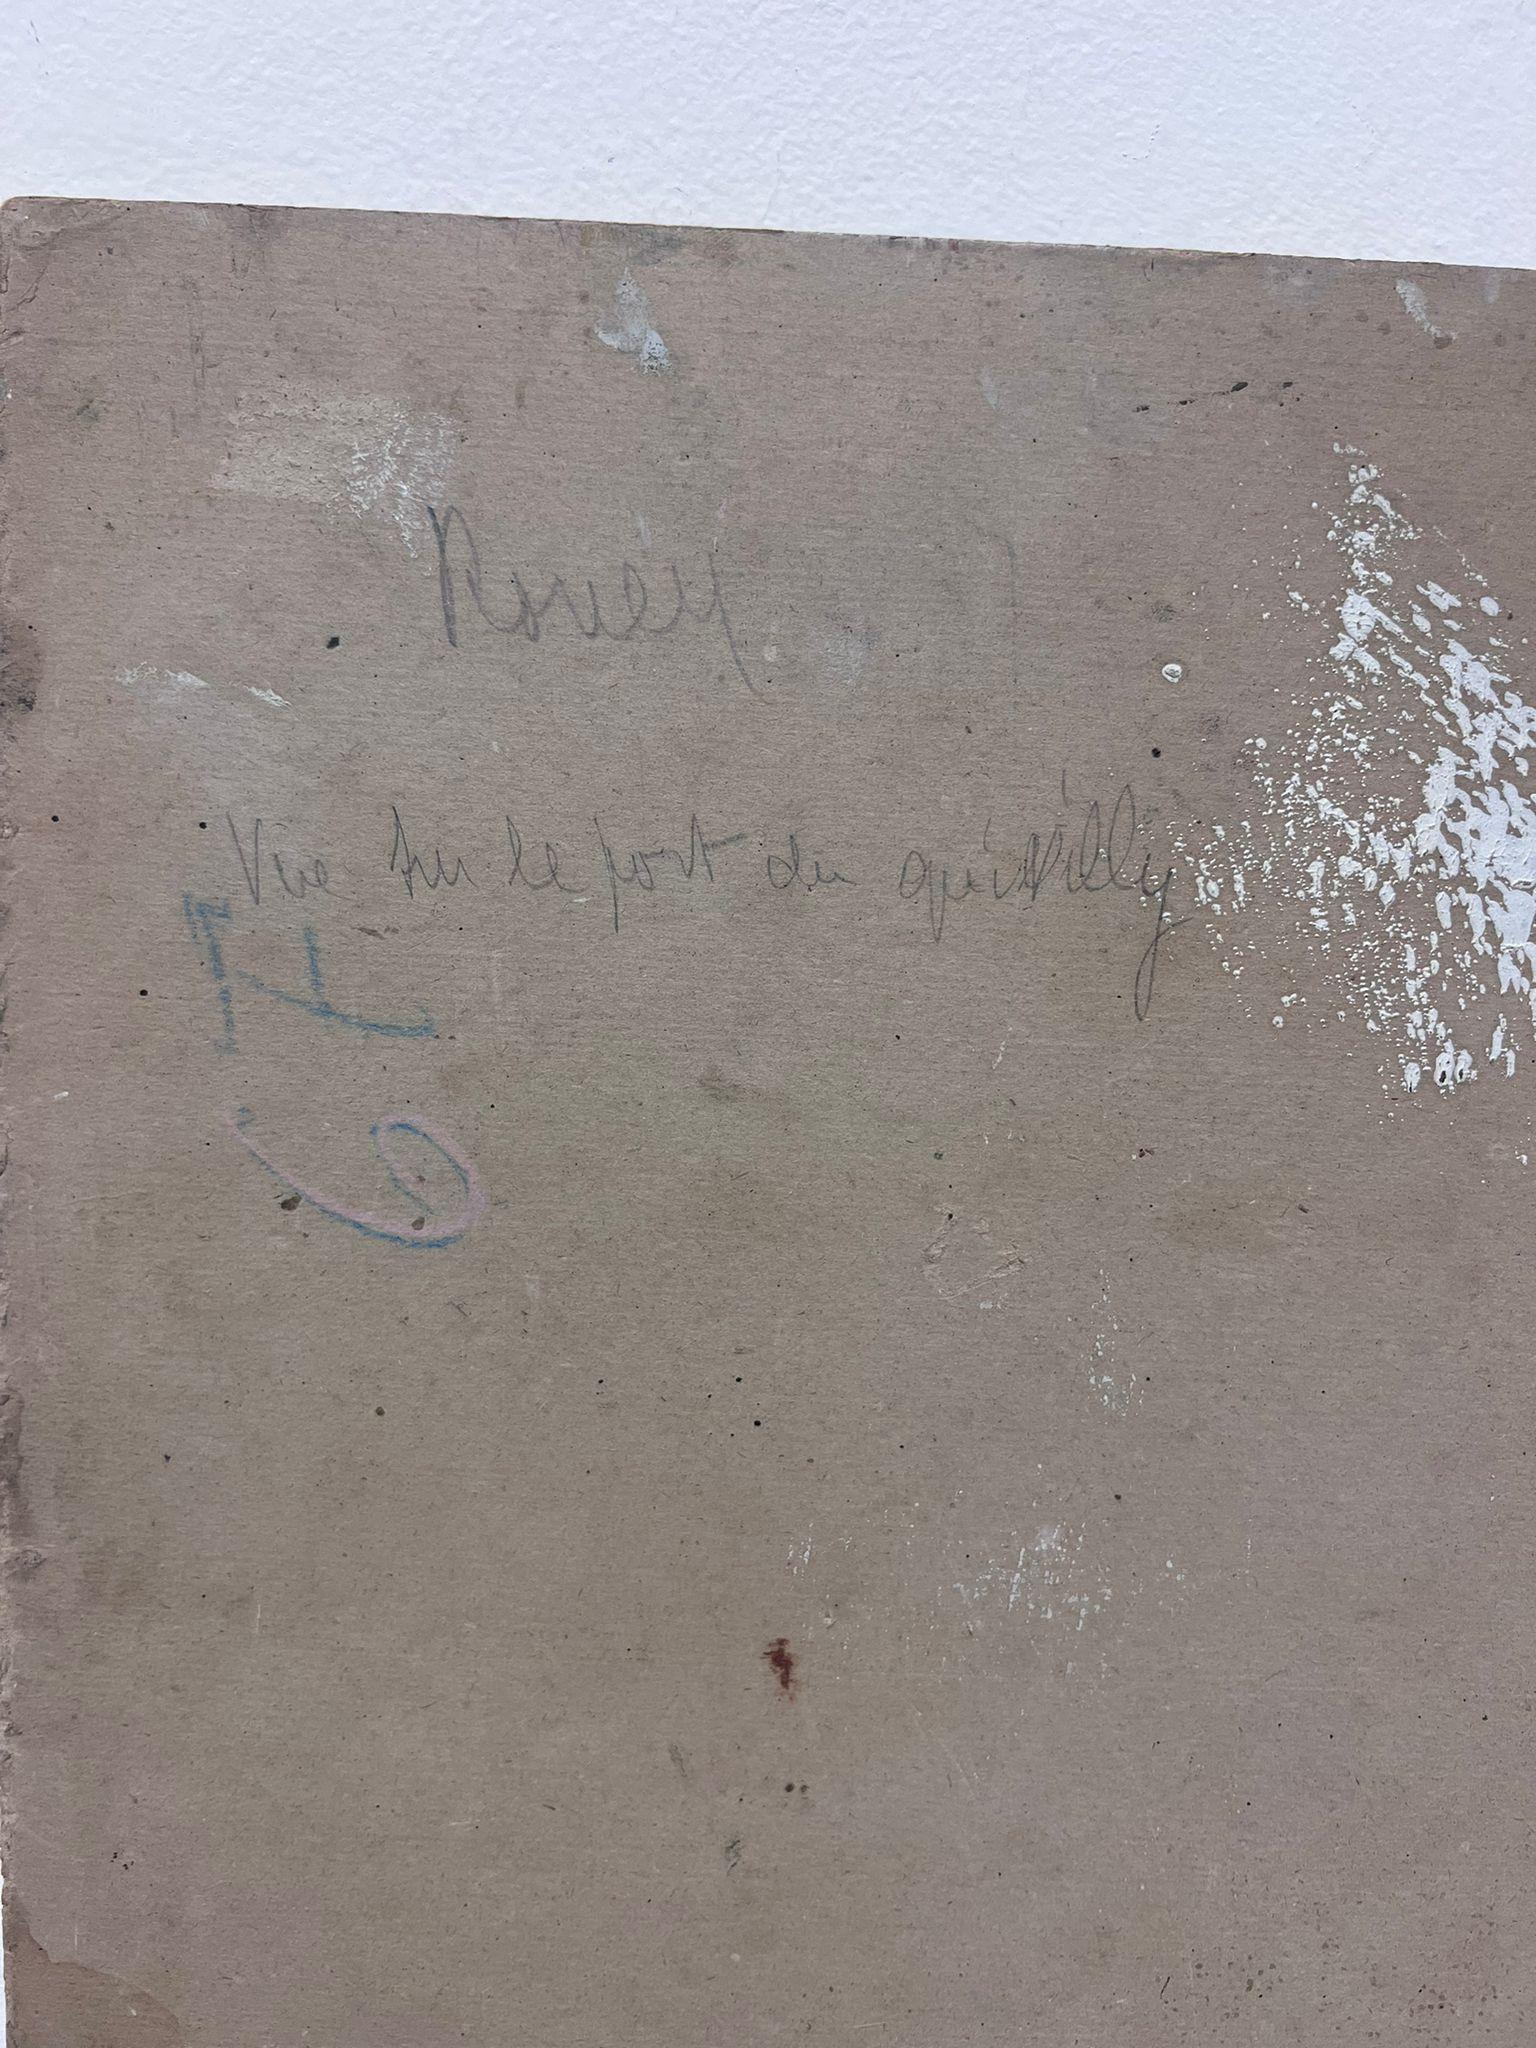 Rouen
Vue sur le port du quévilly